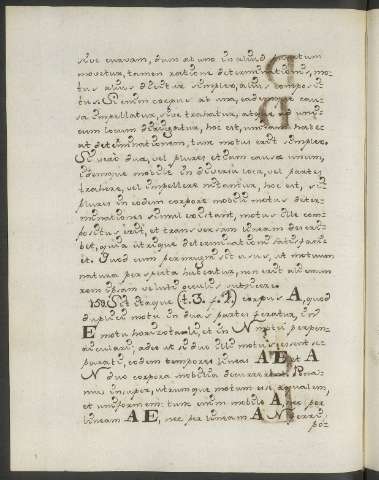 sive curvam, dum ab uno in aliud punctum
movetur, tamen ratione determinationis, mo-
tus alius dicitur simplex, alius composi-
tus. Si enim corpus ab una, eademque cau-
sa impellatur, sive trahatur, atque ad unicum
cum locum dirigatur, hoc est, unicam habe-
at determinationem, tum motus erit simplex.
Si vero duæ, vel plures etiam causæ unum,
idemque mobile in diversa loca, vel partes
trahere, vel impellere nitantur, hoc est, si
plures in eodem corpore mobili motus deter-
minationes simul existant, motus ille com-
positus erit, et transversam lineam descri-
bet, quia utrique determinationi satisfacere
et. Quod cum permagni sit usus, ut motuum
natura perspecta habeatur, non erit alienum
rem ipsam veluti oculis subjicere.
150. Sit itaque (t. 3. f. 2) corpus A, quod
duplici motu in duas partes feratur, in
E motu horizontali, et in N motu perpen-
diculari; adeo ut si duo illi motus essent se-
parati, eodem tempore lineas AE et A
N duo corpora mobilia decurrerent. Pona-
mus insuper, utrumque motum esse æqualem,
et uniformem: tum enim mobile A, nec per
lineam AE, nec per lineam AN ferri
po-